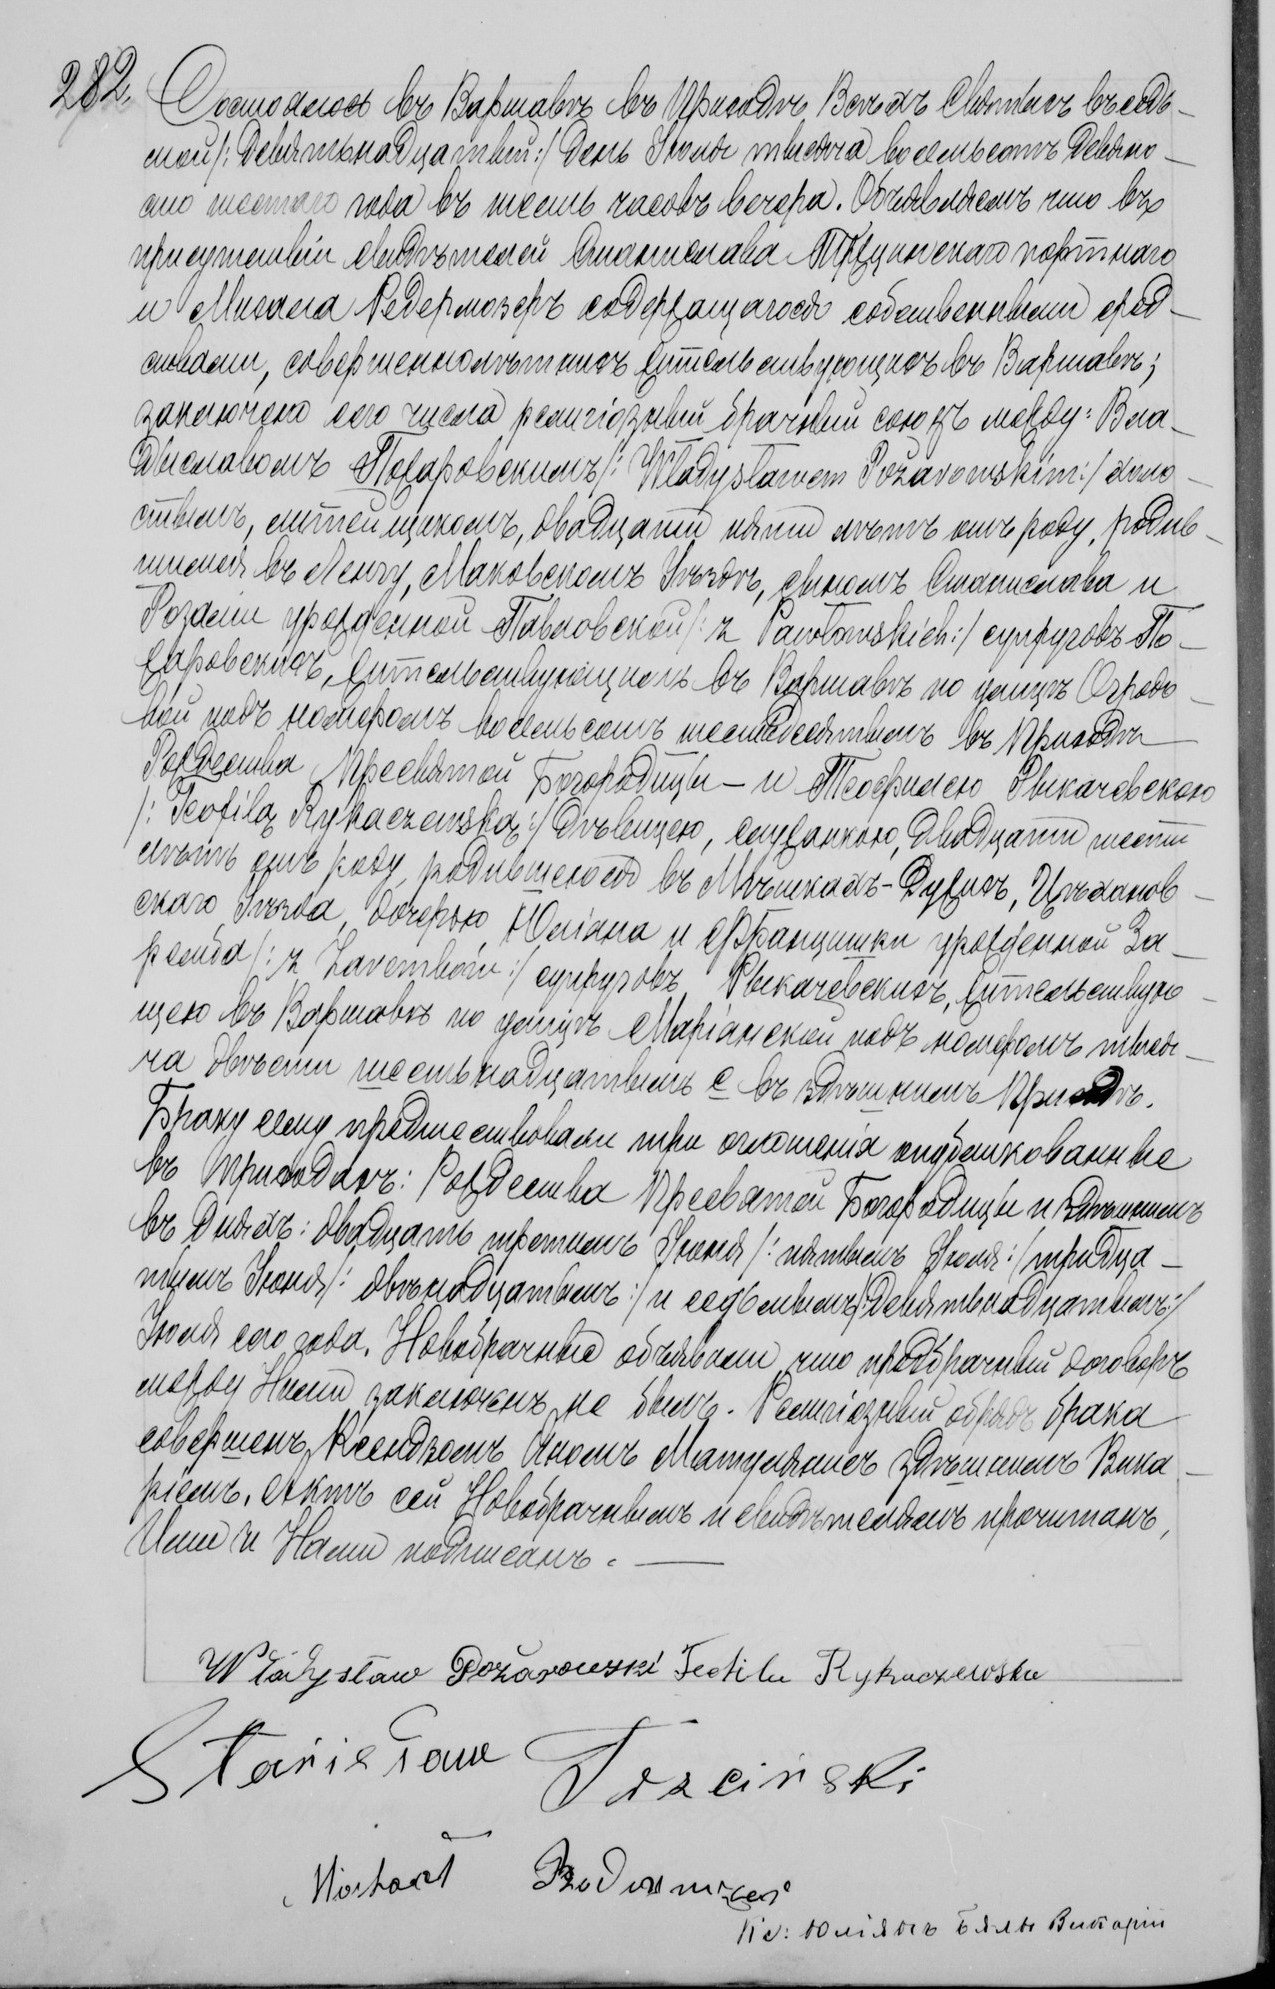 282.
Состоялось въ Варшавѣ въ Приходѣ Всѣхъ Святыхъ въ седь-
мой /: девятьнадцатый :/ день Іюля тысяча восемьсотъ девяно-
сто шестаго года въ шесть часовъ вечера. Объявляемъ что въ
присутствіи свидѣтелей Станислава Трцинскаго портнаго
и Михала Редермозеръ содержащагося собственными сред-
ствами, совершеннолѣтнихъ жительствующихъ въ Варшавѣ;
заключено сего числа религіозный брачный союзъ между: Вла-
диславомъ Пожаровскимъ /: Władysławem Pożarowskim :/ холо-
стымъ, литейщикомъ, двадцати пяти лѣтъ отъ роду, родив-
шимся въ Ленгу, Маковскомъ Уѣздѣ, сыномъ Станислава и
Розаліи урожденной Павловской /: z Pawłowskich :/ супруговъ По-
жаровскихъ, жительствующимъ въ Варшавѣ по улицѣ Огродо-
вой подъ номеромъ восемьсотъ шестьдесятымъ въ Приходѣ
Рождества Пресвятой Богородицы - и Теофилею Рыкачевскою
/: Teofilą Rykaczewską :/ дѣвицею, служанкою, двадцати шести
лѣтъ отъ роду, родившеюся въ Мѣшкахъ-Дужихъ, Цѣханов-
скаго Уѣзда, дочерью Юліана и Францишки урожденной За-
ремба /: z Zarembów :/ супруговъ Рыкачевскихъ, жительствую-
щею въ Варшавѣ по улицѣ Маріанской подъ номеромъ тыся-
ча двѣсти шестьнадцатымъ с въ здѣшнемъ Приходѣ.
Браку сему предшествовали три оглошенія опубликованные
въ Приходахъ: Рождества Пресвятой Богородицы и здѣшнемъ
въ дняхъ: двадцать третьемъ Іюня /: пятымъ Іюля :/ тридца-
тымъ Іюня /: двѣнадцатымъ :/ и седьмымъ /: девятьнадцатымъ :/
Іюля сего года. Новобрачные объявили что предбрачный договоръ
между Ними заключенъ не былъ. Религіозный обрядъ брака
совершенъ Ксендзомъ Яномъ Матулянисъ здѣшнимъ Вика-
ріемъ. Актъ сей Новобрачнымъ и свидѣтелямъ прочитанъ,
Ими и Нами подписанъ.
Władysław Pożarowski Teofila Rykaczewska
Stanisław Trzciński
Michał
Кс: Юліянъ Бялы Викарій